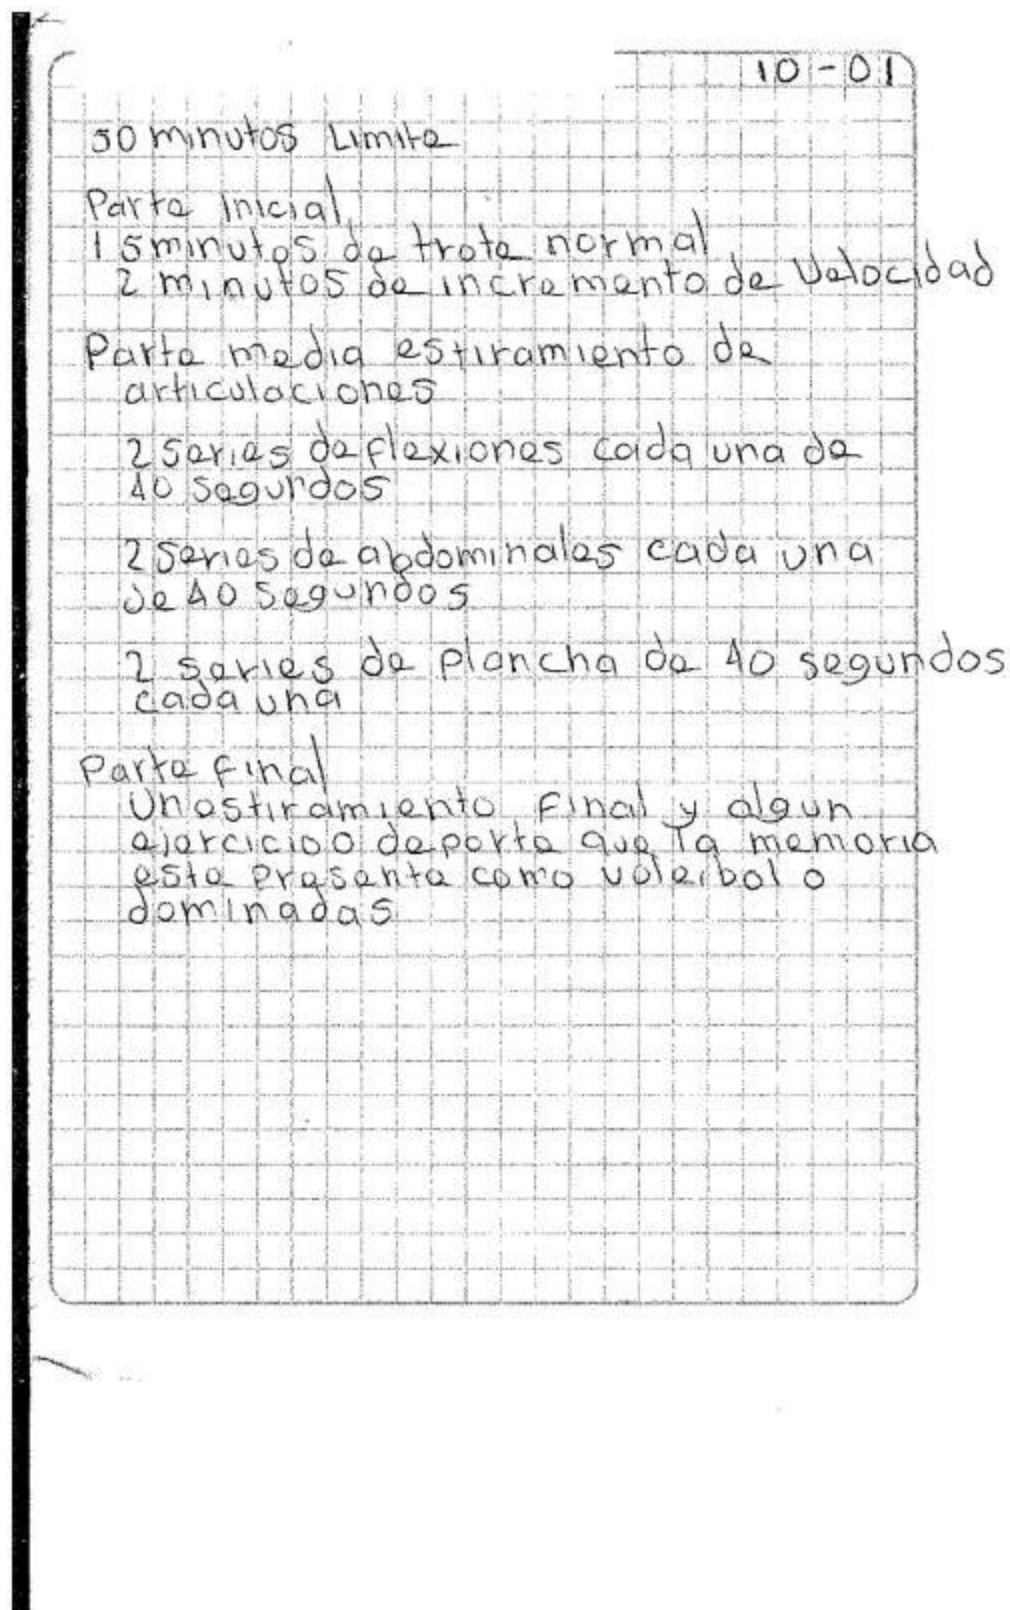 10-01
30 minutos Limite
Parte Inicial
15 minutos de trote normal
2 minutos de incremento de Velocidad
Parte media estiramiento de
articulaciones
2 series de flexiones cada una de
40 segundos
2 series de abdominales cada una
de 40 segundos
2 series de plancha de 40 segundos
cada una
Parte Final
Un estiramiento Final y algun
ejercicio o deporte que la memoria
este presente como voleibol o
dominadas